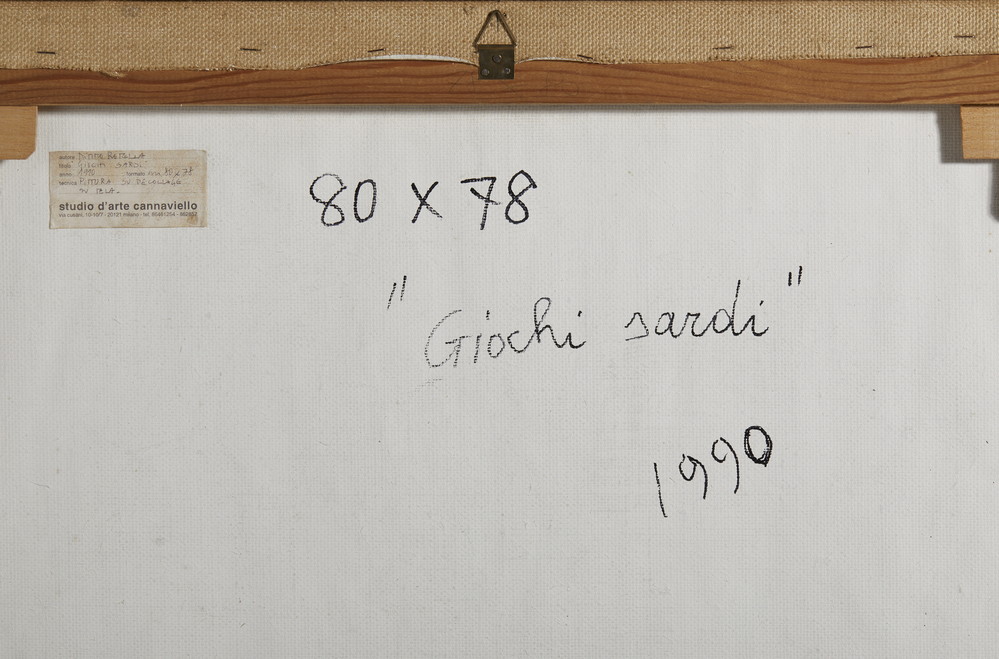 autore MIMMO ROTELLA
titolo GIOCHI SARDI
anno 1990 formato cm 80 x 78
tecnica PITTURA SU DECOLLAGE
SU TELA
studio d'arte cannaviello
milano - tel.
80 X 78
"Giochi sardi"
1990